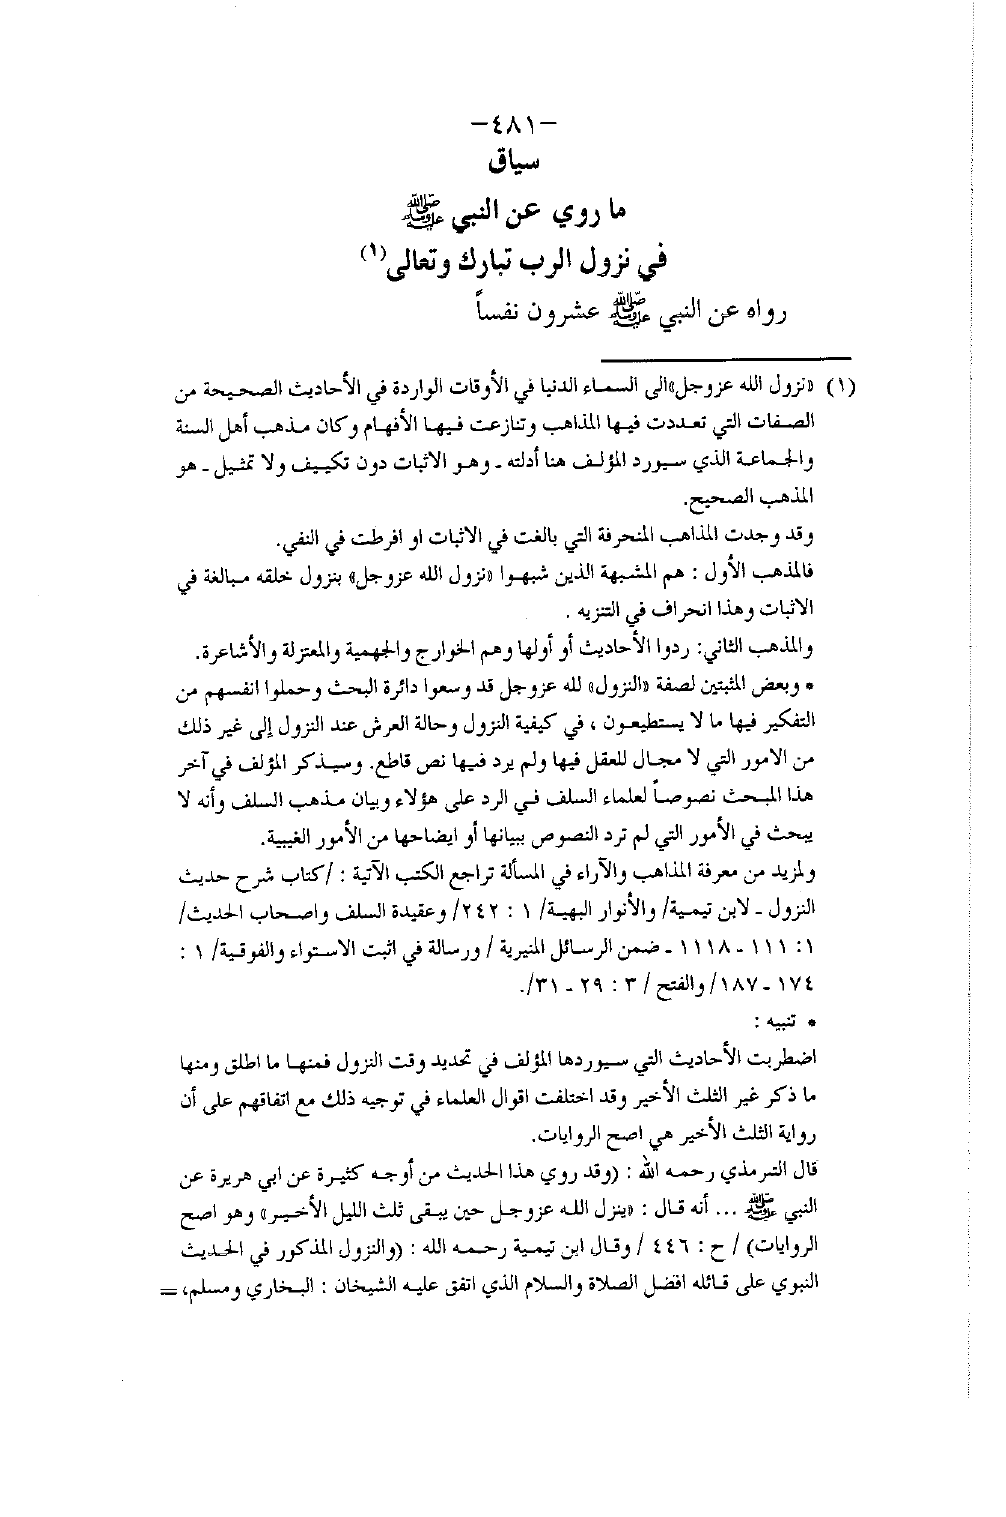 -٤٨١-
سياق
ما روي عن النبي ﷺ
في نزول الرب تبارك وتعالى(١)
رواه عن النبي ﷺ عشرون نفساً
(١) «نزول الله عزوجل»الى السماء الدنيا في الأوقات الواردة في الأحاديث الصحيحة من
الصفات التي تعددت فيها المذاهب وتنازعت فيها الأفهام وكان مذهب أهل السنة
والجماعة الذي سيورد المؤلف هنا أدلته - وهو الاثبات دون تكييف ولا تمثيل - هو
المذهب الصحيح.
وقد وجدت المذاهب المنحرفة التي بالغت في الاثبات او افرطت في النفي.
فالمذهب الأول : هم المشبهة الذين شبهوا «نزول الله عزوجل» بنزول خلقه مبالغة في
الاثبات وهذا انحراف في التنزيه .
والمذهب الثاني: ردوا الأحاديث أو أولها وهم الخوارج والجهمية والمعتزلة والأشاعرة.
* وبعض المثبتين لصفة «النزول» لله عزوجل قد وسعوا دائرة البحث وحملوا انفسهم من
التفكير فيها ما لا يستطيعون ، في كيفية النزول وحالة العرش عند النزول إلى غير ذلك
من الامور التي لا مجال للعقل فيها ولم يرد فيها نص قاطع. وسيذكر المؤلف في آخر
هذا المبحث نصوصاً لعلماء السلف في الرد على هؤلاء وبيان مذهب السلف وأنه لا
يبحث في الأمور التي لم ترد النصوص ببيانها أو ايضاحها من الأمور الغيبية.
ولمزيد من معرفة المذاهب والآراء في المسألة تراجع الكتب الآتية : /كتاب شرح حديث
النزول - لابن تيمية/ والأنوار البهية/ ١ : ٢٤٢/ وعقيدة السلف واصحاب الحديث/
١: ١١١ - ١١١٨ - ضمن الرسائل المنيرية / ورسالة في اثبت الاستواء والفوقية/ ١ :
١٧٤ - ١٨٧/ والفتح / ٣ : ٢٩ - ٣١/.
* تنبيه :
اضطربت الأحاديث التي سيوردها المؤلف في تحديد وقت النزول فمنها ما اطلق ومنها
ما ذكر غير الثلث الأخير وقد اختلفت اقوال العلماء في توجيه ذلك مع اتفاقهم على أن
رواية الثلث الأخير هي اصح الروايات.
قال الترمذي رحمه الله : (وقد روي هذا الحديث من أوجه كثيرة عن ابي هريرة عن
النبي ﷺ ... أنه قال : «ينزل الله عزوجل حين يبقى ثلث الليل الأخير» وهو اصح
الروايات) / ح : ٤٤٦ / وقال ابن تيمية رحمه الله : (والنزول المذكور في الحديث
النبوي على قائله افضل الصلاة والسلام الذي اتفق عليه الشيخان : البخاري ومسلم، =